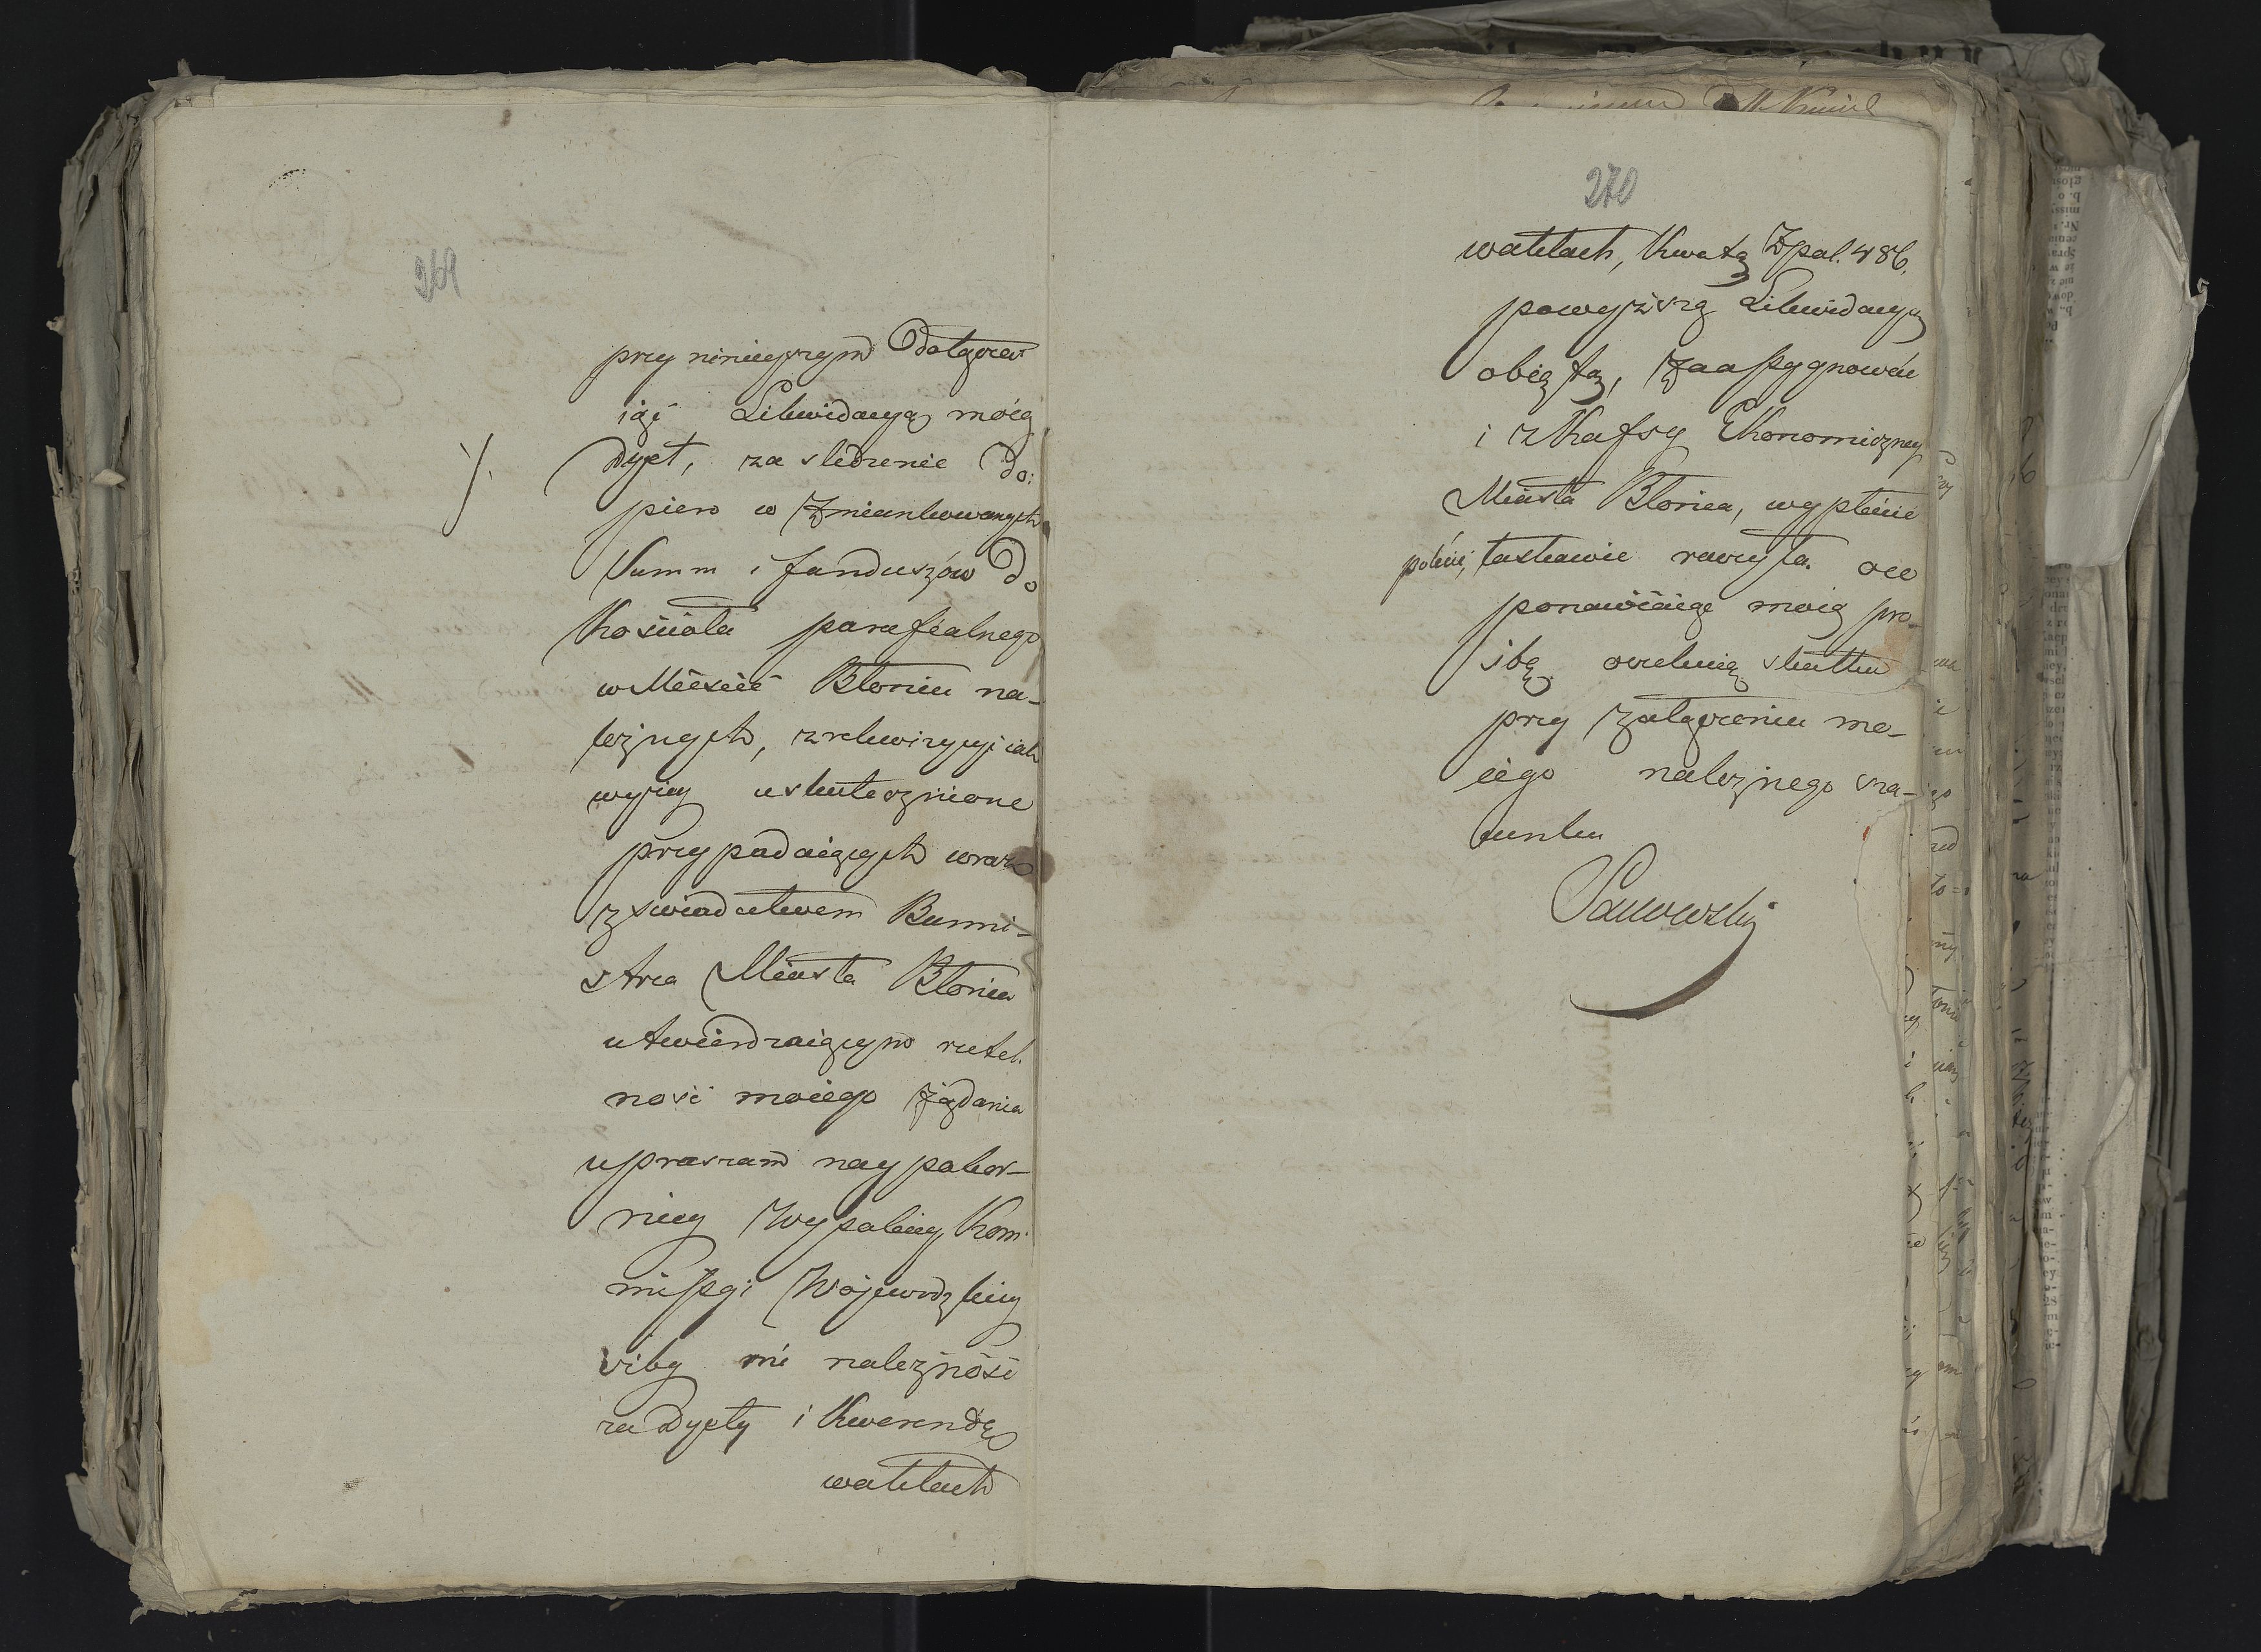 269
przy ninieyszym Dołącza
iąc Likwidacyą moią
Dyet, za sledzenie do:
piero w Zmiankowanych
Summ i funduszów do
Kościoła parafialnego
w Mieście Błoniu na-
leżnych, z rekwizycyi iak
wyżey uskutecznione
przypadaiących wraz
z świadectwem Burmi-
strza Miasta Błonia
utwierdzaiącym rzetel.
ność moiego Żądania
upraszam naypokor-
niey Wysokiey Kom
missyi Woiewodzkiey
iżby mi należność
za Dyety i Kwerendę
w aktach
270
w aktach, Kwotą Zpol. 486.
powyższą Likwidacyą
obiętą, Zaassygnować
i z Kassy Ekonomiczney
Miasta Błonia, wypłacić
polecić, łaskawie raczyła. oco
ponawiaiąc moią pro-
śbę oczekuię skutku
przy załączeniu mo-
iego należnego sza-
cunku